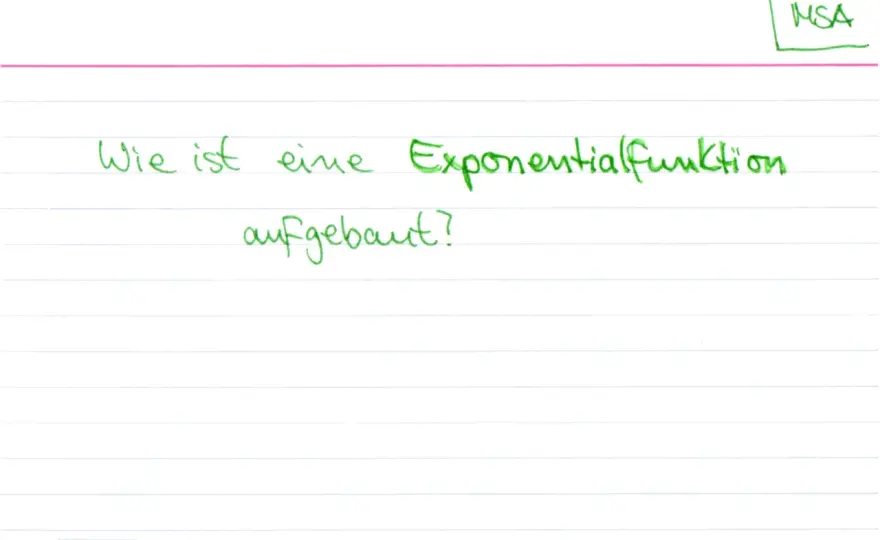 MSA
Wie ist eine Exponentialfunktion
aufgebaut?